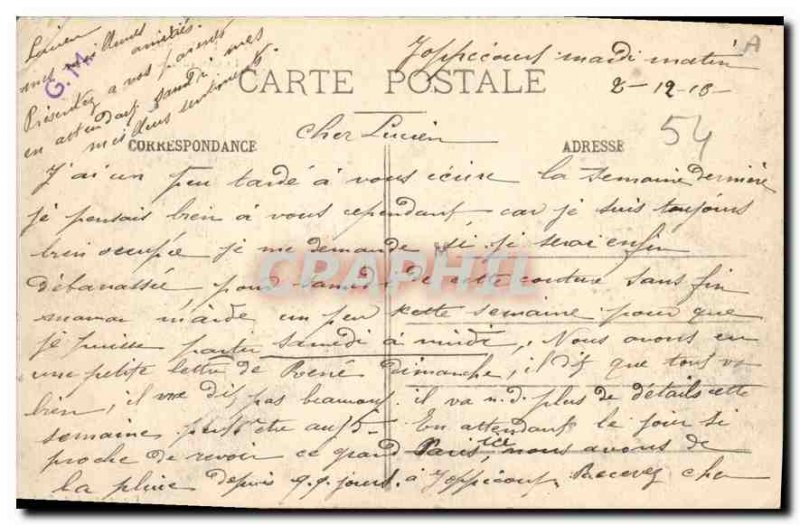 Joppécourt mardi matin
8-12-18-
A
54
CARTE POSTALE
CORRESPONDANCE
ADRESSE
Cher Lucien
J'ai un peu tardé à vous écrire la semaine dernière
je pensais bien à vous cependant car je suis toujours
bien occupée je me demande si je serai enfin
débarrassée pour samedi de cette couture sans fin
maman m'aide un peu cette semaine pour que
je puisse partir samedi à midi, Nous avons eu
une petite lettre de René dimanche, il dit que tout va
bien, il ne dit pas beaucoup il va n.d. plus de détails cette
semaine peut être aussi - En attendant le jour si
proche de revoir ce grand Paris, ici nous avons de
la pluie depuis q.q. jours à Joppécourt, Recevez cher
Lucien
mes meilleures
amitiés.
Présentez à vos parents mes
en attendant samedi
meilleurs sentiments
G.M.
CPAPHIL